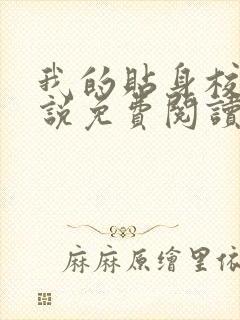 我的貼身校
說免費閱讀
麻麻原繪里依